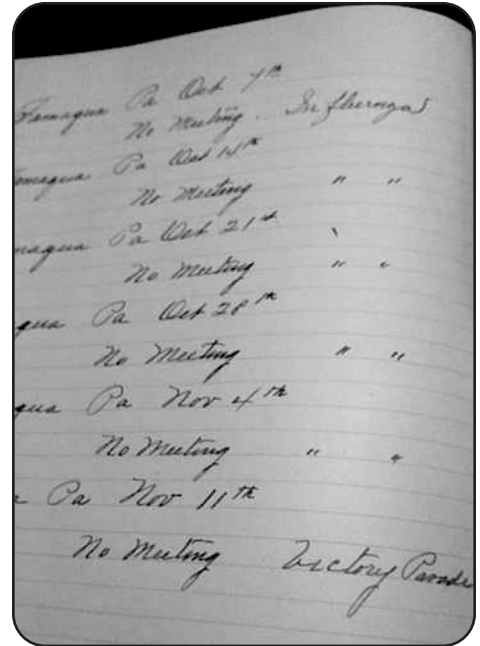 Tamaqua Pa Oct 7th
No Meeting. Influenza
maqua Pa Oct 14th
No Meeting " "
maqua Pa Oct 21st
No Meeting " "
qua Pa Oct 28th
No Meeting " "
qua Pa Nov 4th
No Meeting " "
a Pa Nov 11th
No Meeting Victory Parade